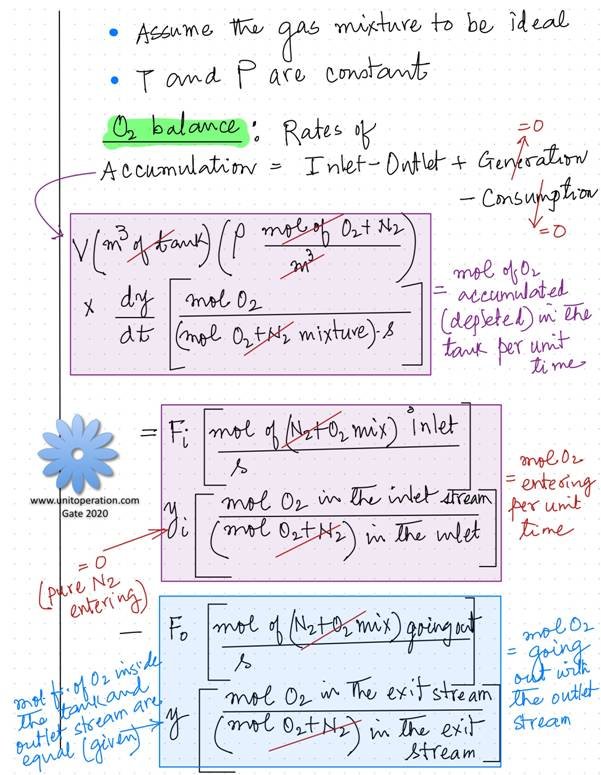 • Assume the gas mixture to be ideal
• T and P are constant
O2 balance: Rates of
= 0
Accumulation = Inlet - Outlet + Generation
- Consumption
= 0
V (m³ of tank) (ρ mol of O2 + N2 / m³)
× dy/dt [mol O2 / (mol O2+N2 mixture)·s]
= mol of O2
accumulated
(depleted) in the
tank per unit
time
= Fi [mol of (N2+O2 mix) inlet / s]
yi [mol O2 in the inlet stream / (mol O2+N2) in the inlet]
= mol O2
entering
per unit
time
www.unitoperation.com
Gate 2020
= 0
(pure N2
entering)
- Fo [mol of (N2+O2 mix) going out / s]
y [mol O2 in the exit stream / (mol O2+N2) in the exit
stream]
= mol O2
going
out with
the outlet
stream
mol fr. of O2 inside
the tank and
outlet stream are
equal (given)